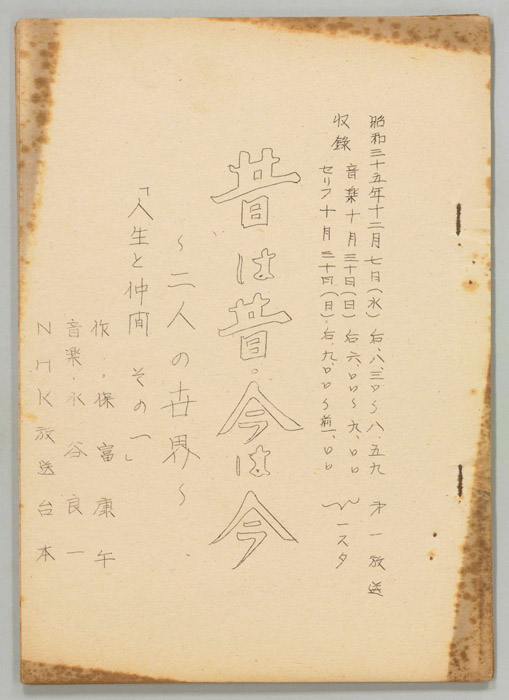 昭和三十五年十二月七日(水) 后.八.三〇〜八.五九 才一放送
収録 音楽十月三十日(日) 后六.〇〇〜九.〇〇
セリフ十月三十日(日).后.九.〇〇〜前一.〇〇 一スタ
昔は昔。今は今
〜二人の世界〜
「人生と仲間 その一」
作.保富康午
音楽.水谷良一
NHK放送台本